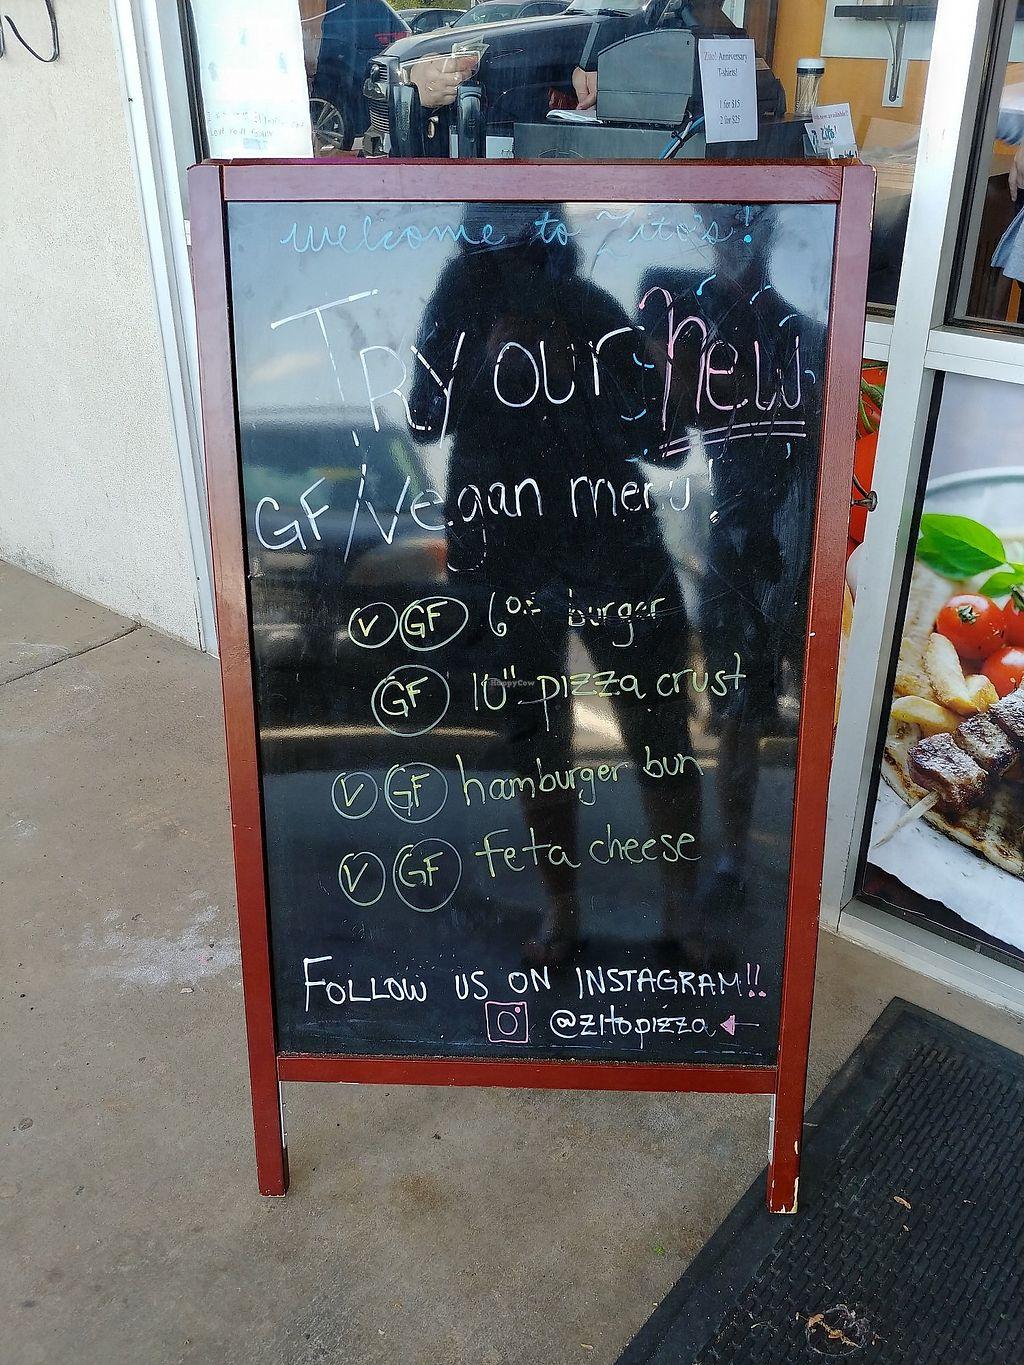 Zito! Anniversary
T-shirts!
1 for $15
2 for $25
Zito's!
welcome to Zito's!
Try our new
GF/Vegan menu!
V GF 6oz burger
GF 10" pizza crust
HappyCow
V GF hamburger bun
V GF feta cheese
FOLLOW US ON INSTAGRAM!!
@zitopizza